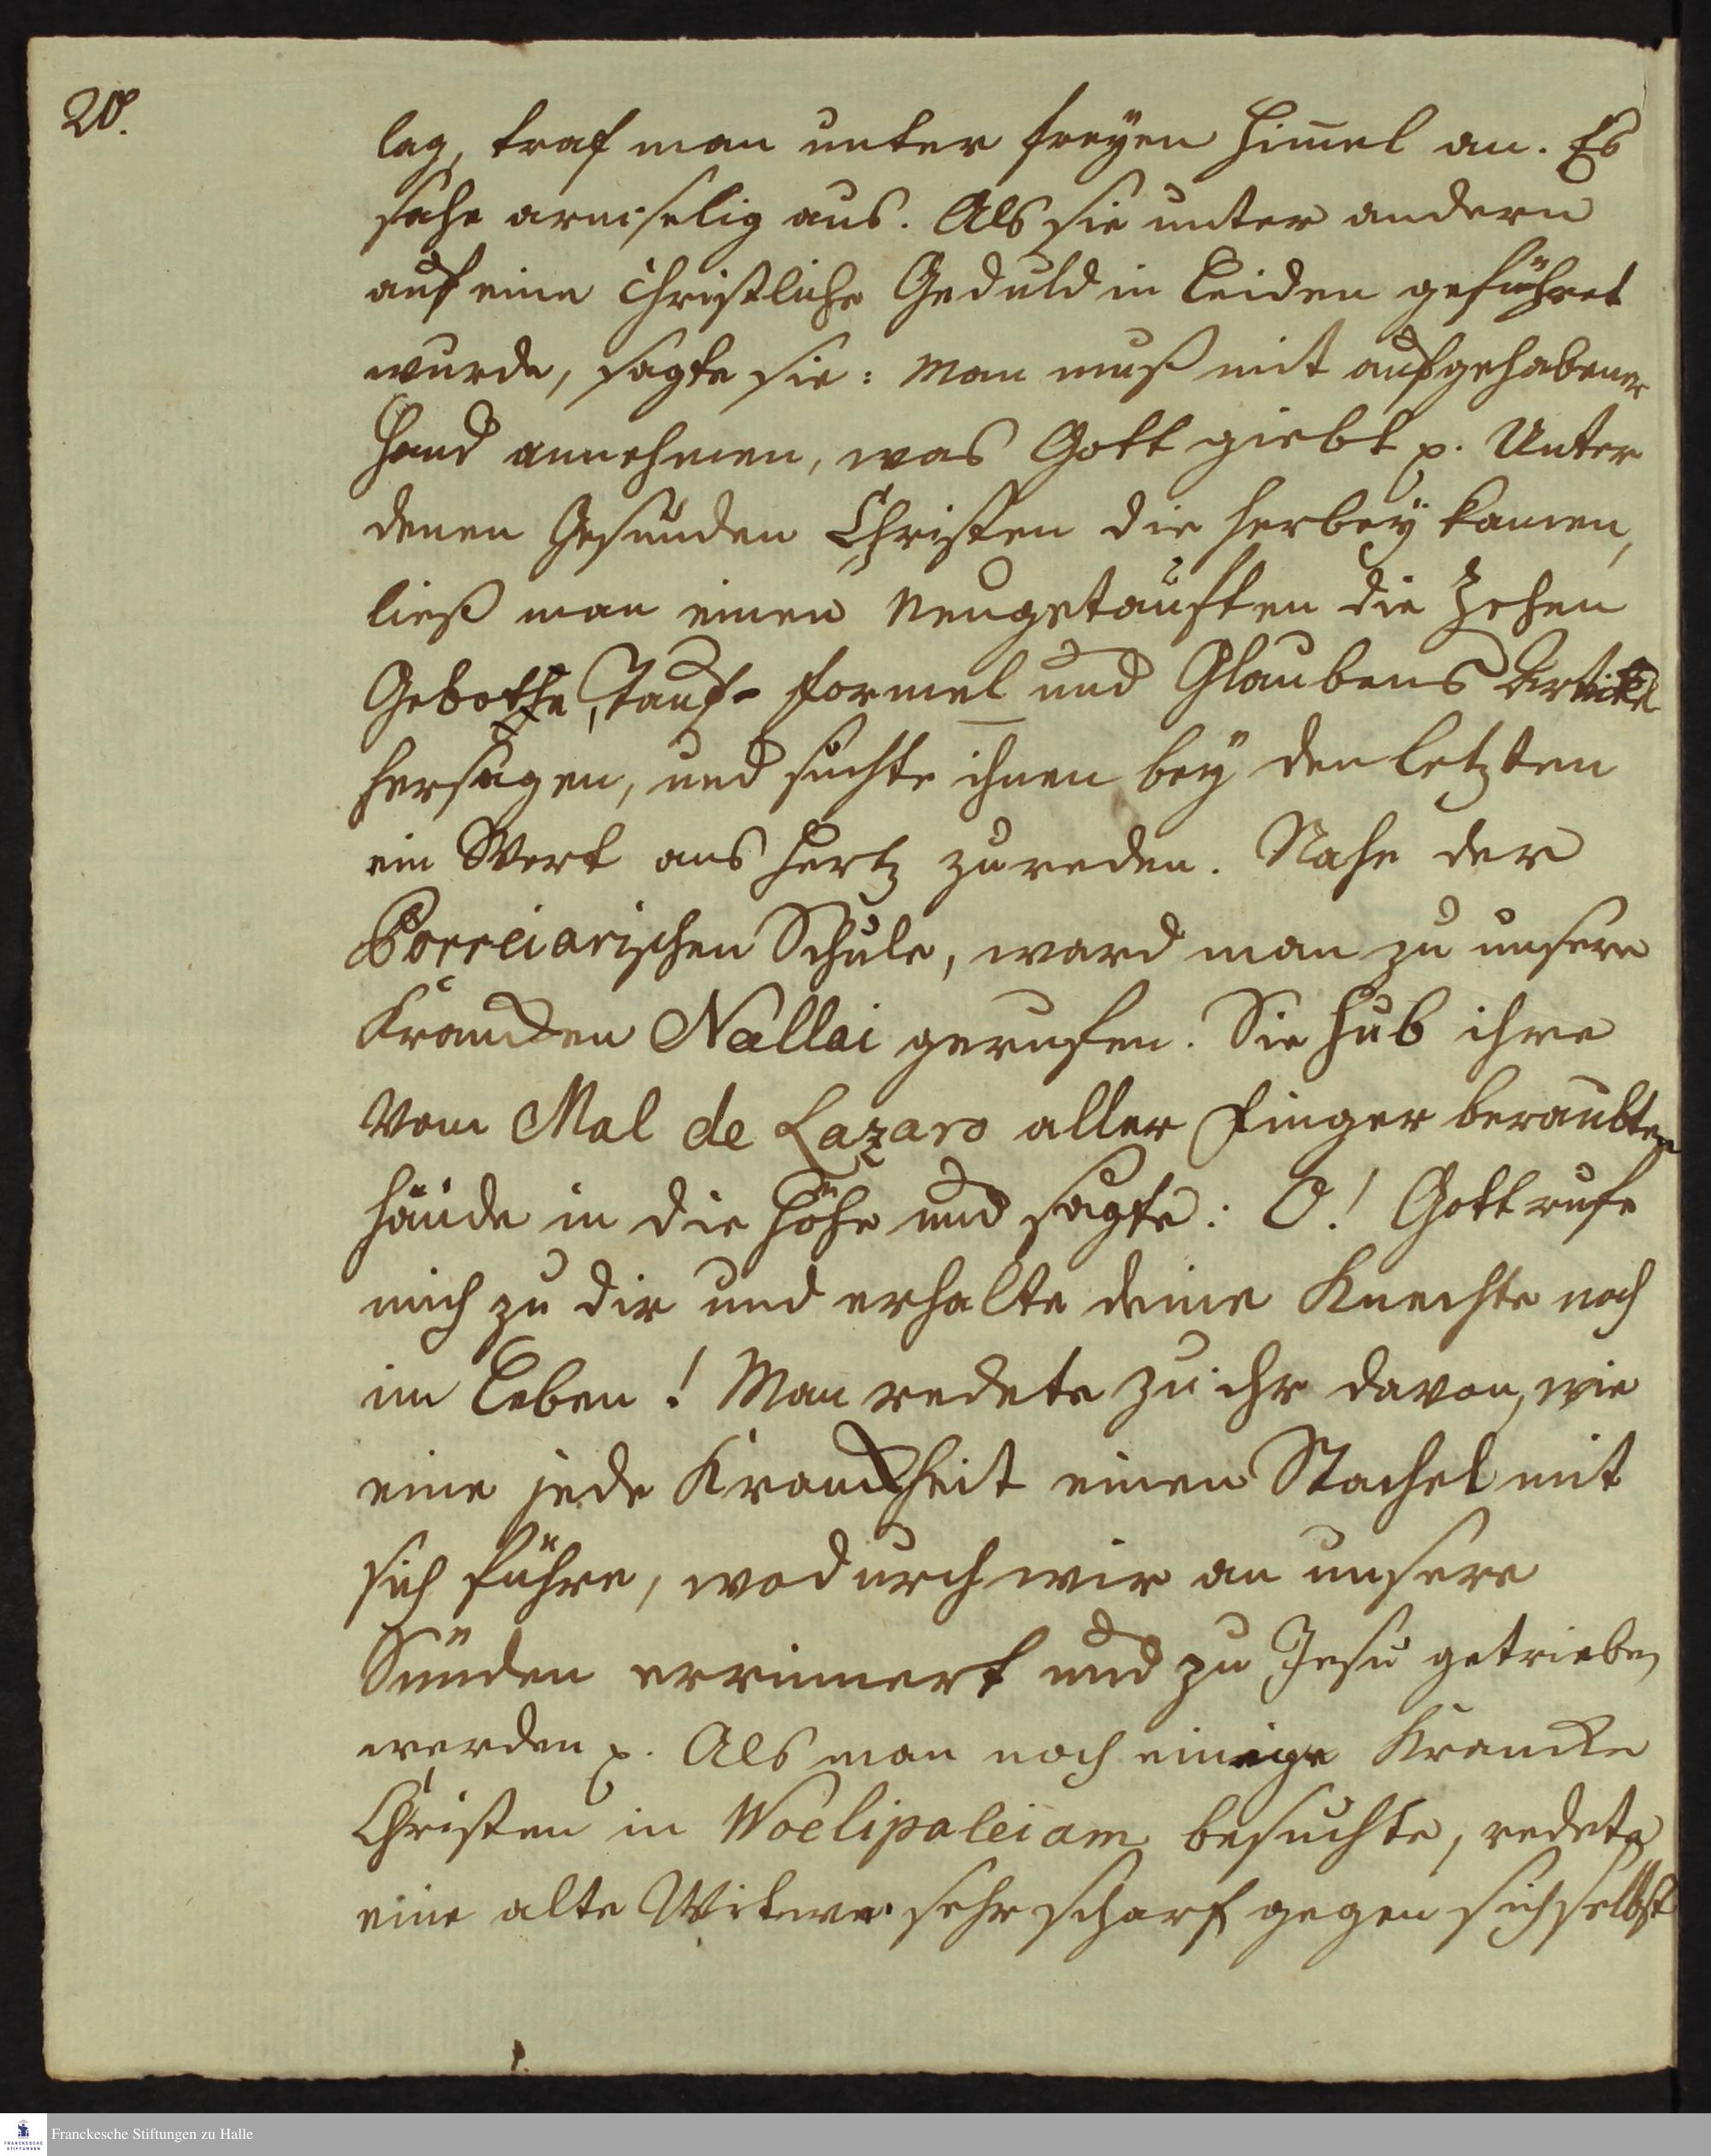 20.
lag, traf man unter freyen Him̅el an. Es
sahe armselig aus. Als sie unter andern
auf eine christliche Geduld in Leiden geführet
wurde, sagte sie: Man muß mit aufgehabener
Hand annehmen, was Gott giebt p. Unter
denen Gesunden Christen die herbey kamen,
ließ man einen Neugetauften die Zehen
Gebothe, Tauf- formel und Glaubens Artickel
hersagen, und suchte ihnen bey den letzten
ein Wort ans Hertz zureden. Nahe der
Porreiarischen Schule, ward man zu unsere
Krancken Nallai gerufen. Sie hub ihre
vom Mal de Lazaro aller Finger beraubten
Hände in die Höhe und sagte: O! Gott rufe
mich zu dir und erhalte deine Knechte noch
im Leben! Man redete zu ihr davon, wie
eine jede Kranckheit einen Stachel mit
sich führe, wodurch wir an unsere
Sünden errinnert und zu Jesu getrieben
werden p. Als man noch einige Krancke
Christen in Woelipaleiam besuchte, redete
eine alte Witwe sehr scharf gegen sich selbst
Franckesche Stiftungen zu Halle